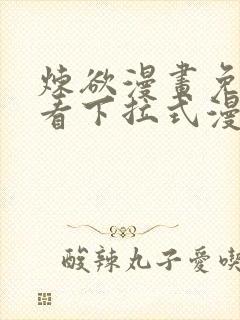 煉欲漫畫免
看下拉式漫
酸辣丸子愛喫